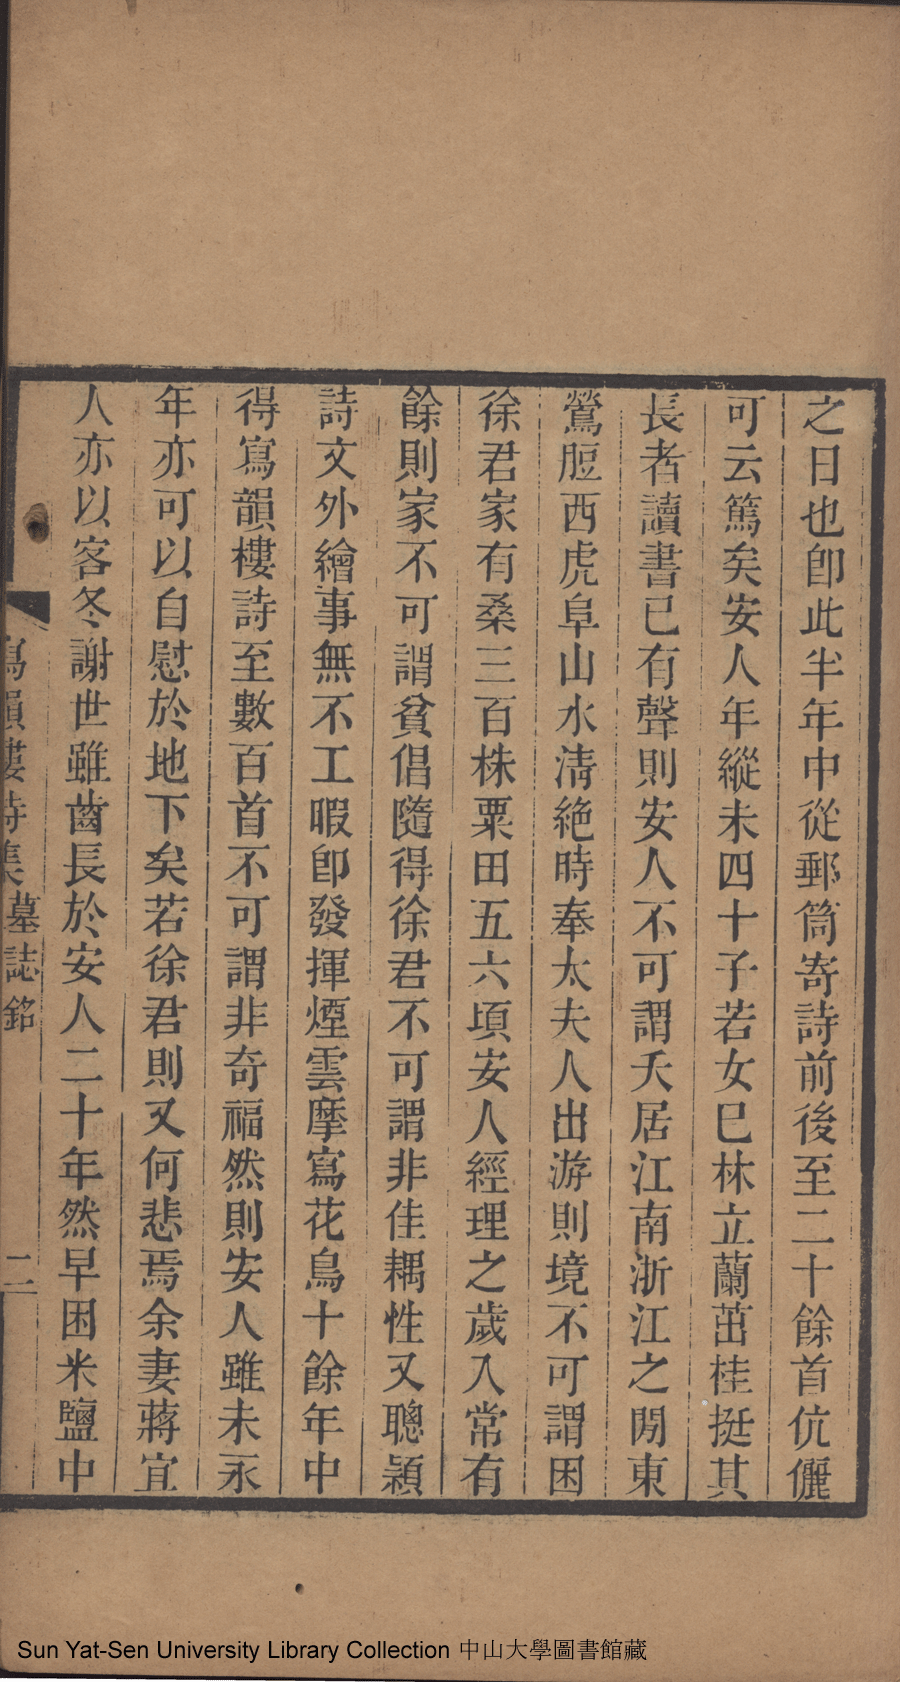 之日也卽此半年中從郵筒寄詩前後至二十餘首伉儷
可云篤矣安人年縱未四十子若女已林立蘭茁桂挺其
長者讀書已有聲則安人不可謂夭居江南浙江之閒東
鶯脰西虎阜山水淸絶時奉太夫人出游則境不可謂困
徐君家有桑三百株粟田五六頃安人經理之歲入常有
餘則家不可謂貧倡隨得徐君不可謂非佳耦性又聰穎
詩文外繪事無不工暇卽發揮煙雲摩寫花鳥十餘年中
得寫韻樓詩至數百首不可謂非奇福然則安人雖未永
年亦可以自慰於地下矣若徐君則又何悲焉余妻蔣宜
人亦以客冬謝世雖齒長於安人二十年然早困米鹽中
寫韻樓詩集 墓誌銘 二
Sun Yat-Sen University Library Collection 中山大學圖書館藏